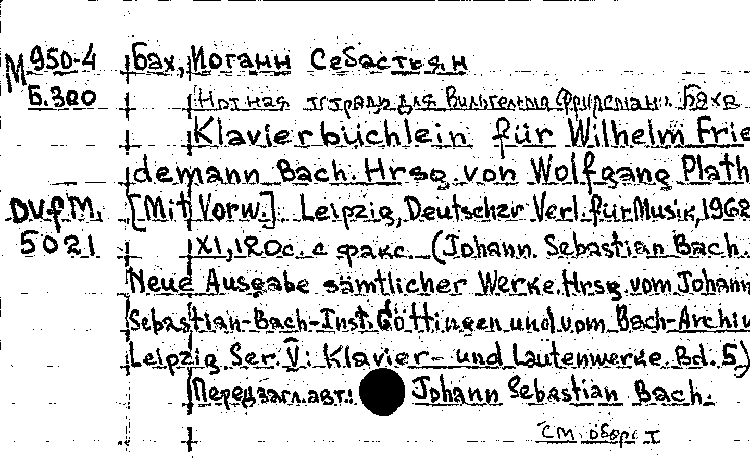 М 950-4 Бах, Иоганн Себастьян
Б.300 Нотная тетрадь для Вильгельма Фридемана Баха
Klavierbüchlein für Wilhelm Frie
demann Bach. Hrsg. von Wolfgang Plath
DVfM. [Mit Vorw.]. Leipzig, Deutscher Verl. für Musik, 1968
5021 XI, 120 с. с факс. (Johann Sebastian Bach.
Neue Ausgabe sämtlicher Werke. Hrsg. vom Johann
Sebastian-Bach-Inst. Göttingen und vom Bach-Archiv
Leipzig. Ser. V: Klavier- und Lautenwerke. Bd. 5)
Перед загл. авт.: Johann Sebastian Bach.
см. оборот